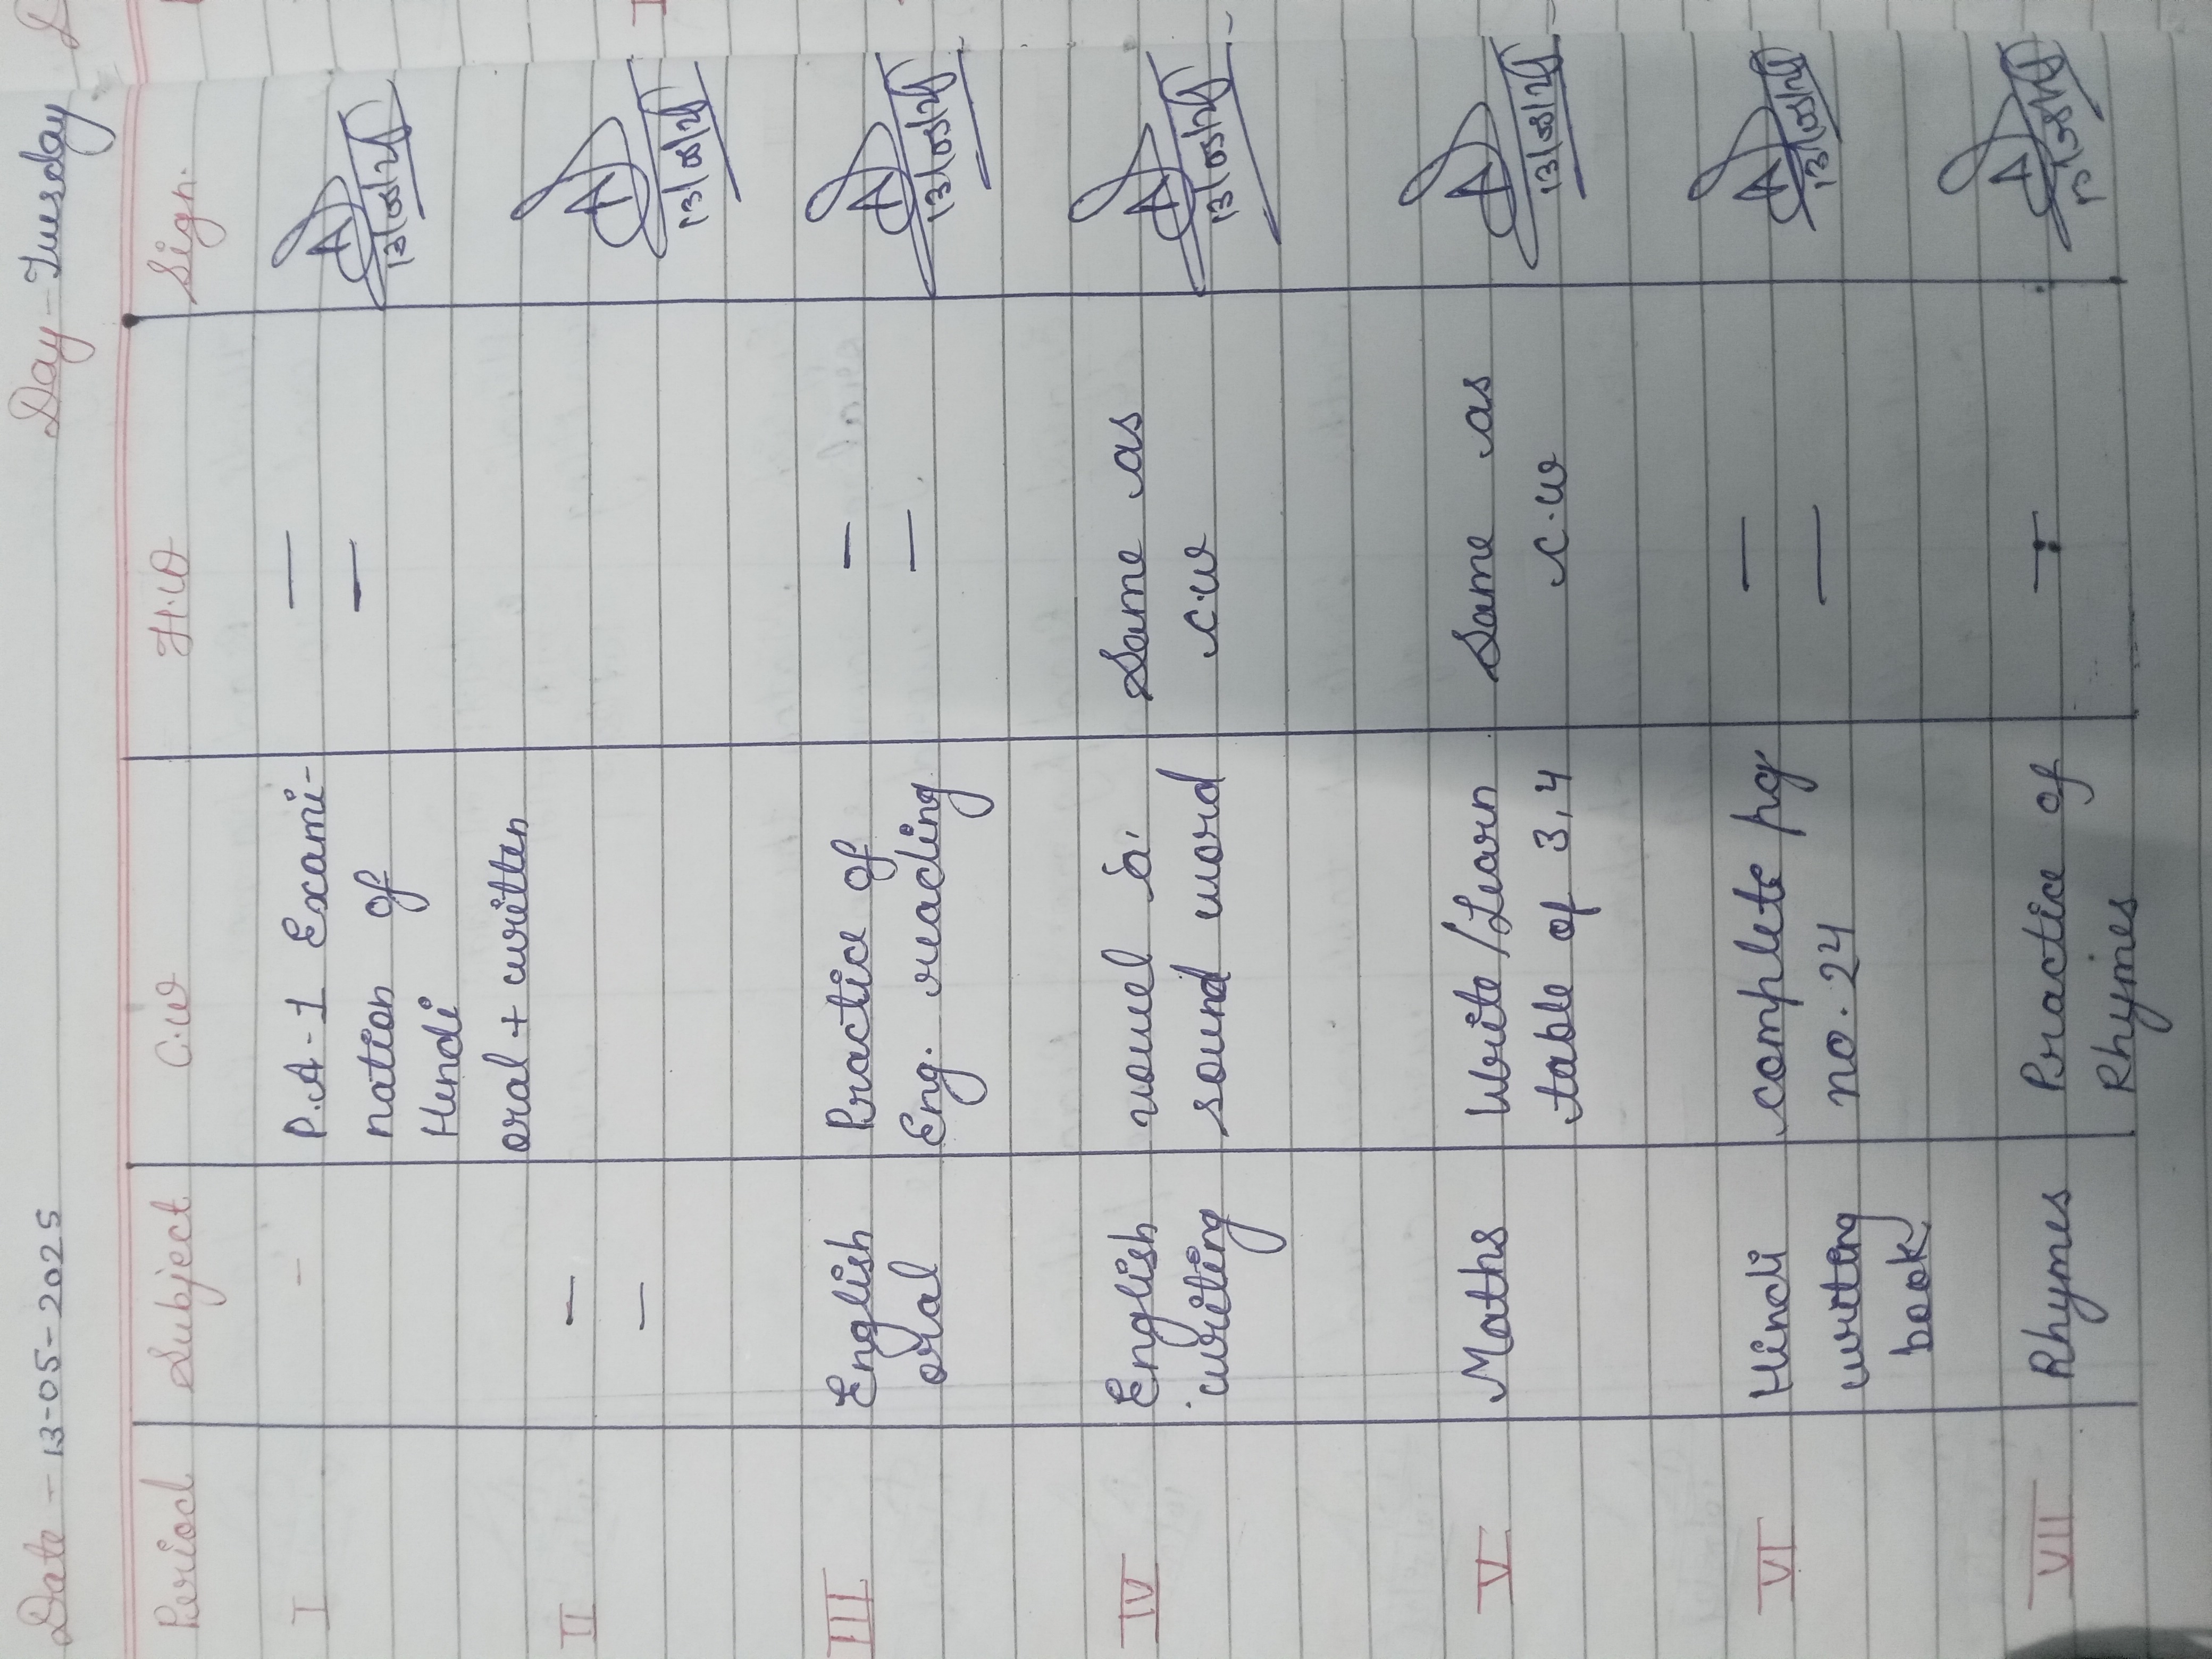 Date - 13-05-2025 Day - Tuesday
Period Subject C.W H.W Sign.
I - P.A-1 Exami- —
nation of —
Hindi
oral + written
13/05/25
II —
—
13/05/25
III English Practice of —
oral Eng. reading —
13/05/25
IV English vowel 'a' Same as
writing sound word C.W
13/05/25
V Maths Write/Learn Same as
table of 3,4 C.W
13/05/25
VI Hindi complete pg —
writing no. 24 —
book
13/05/25
VII Rhymes Practice of —
Rhymes
13/05/25